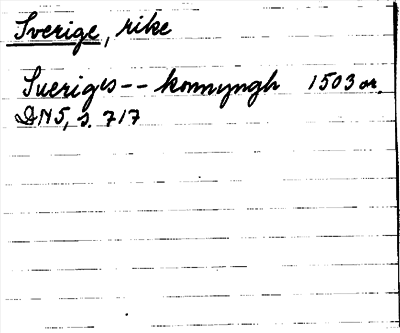 Sverige, rike
Sueriges -- konnyngh 1503 or.
DN 5, s. 717